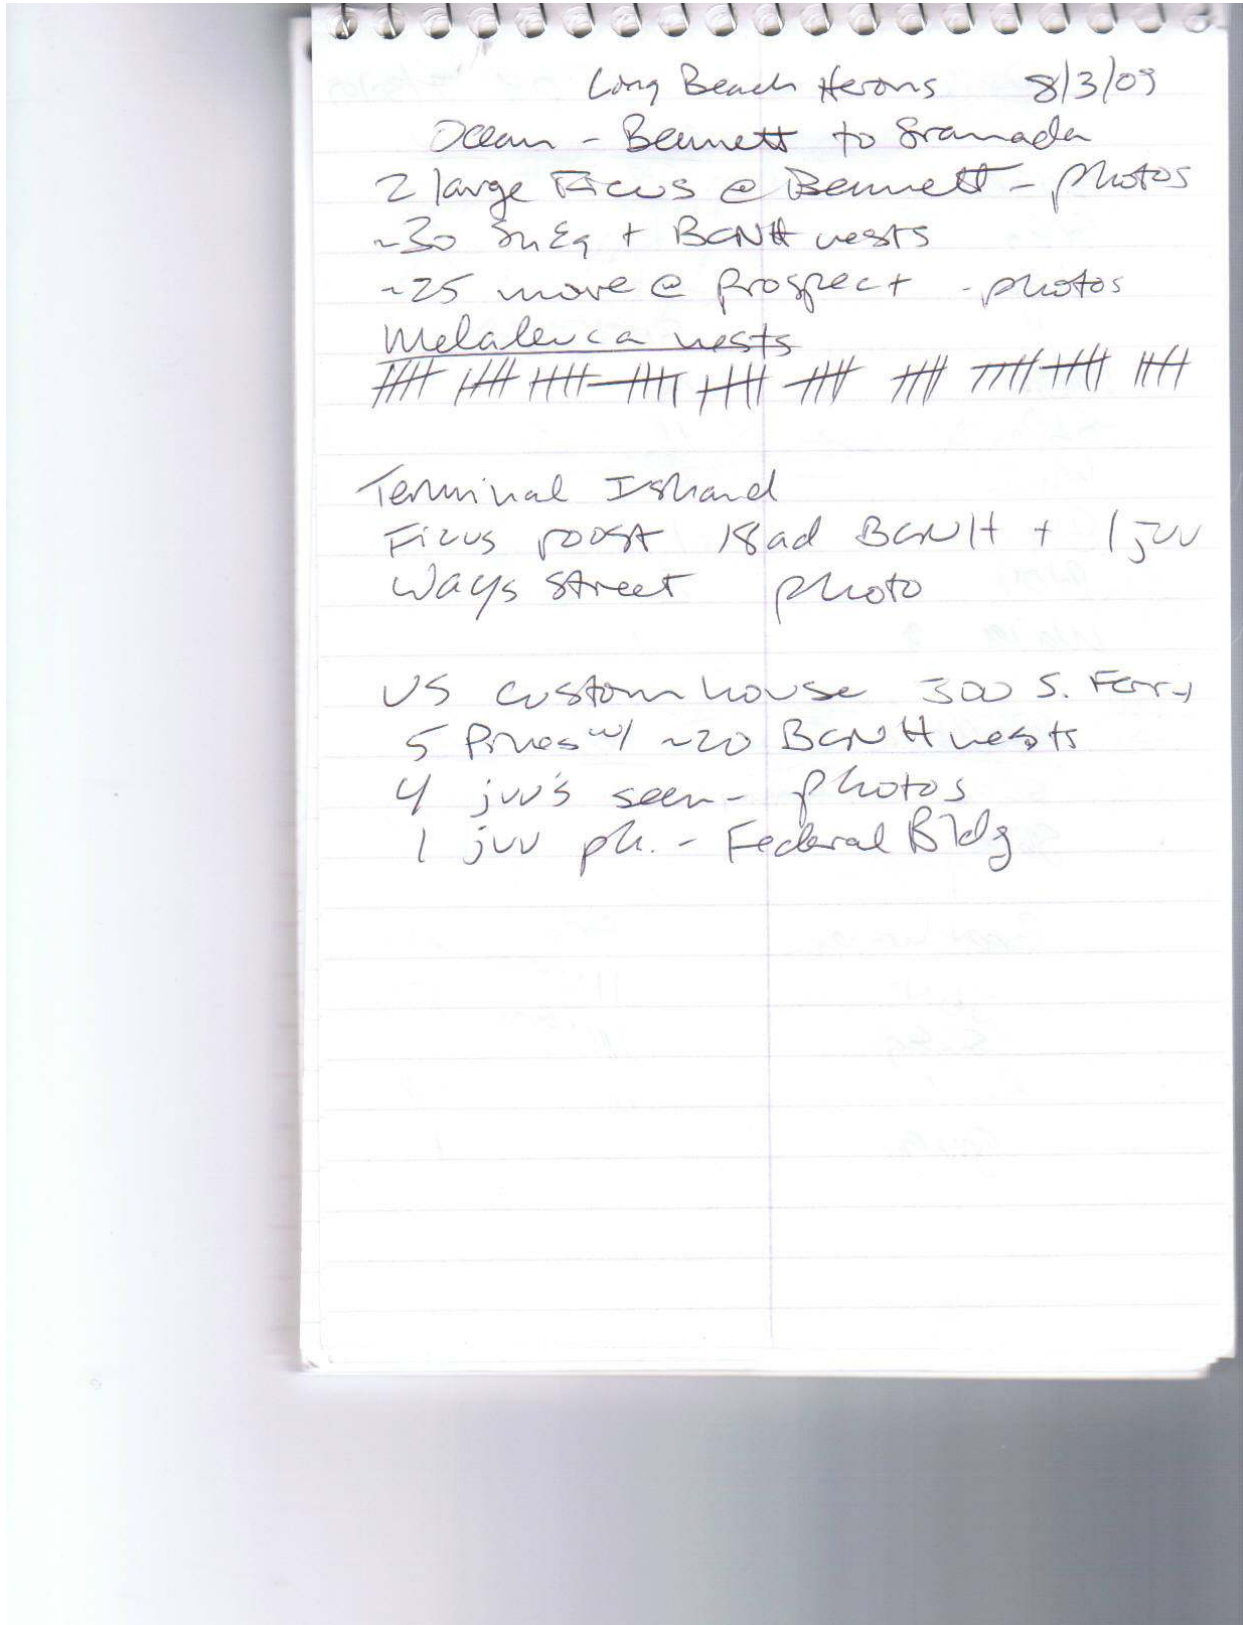 Long Beach Herons 8/3/09
Ocean - Bennett to Granada
2 large Ficus @ Bennett - photos
~30 SnEg + BCNH nests
~25 more @ Prospect - photos
Melaleuca nests
Terminal Island
Ficus roost 18 ad BCNH + 1 juv
Ways Street photo
US Custom house 300 S. Ferry
5 Pines w/ ~20 BCNH nests
4 juv's seen - photos
1 juv ph. - Federal Bldg